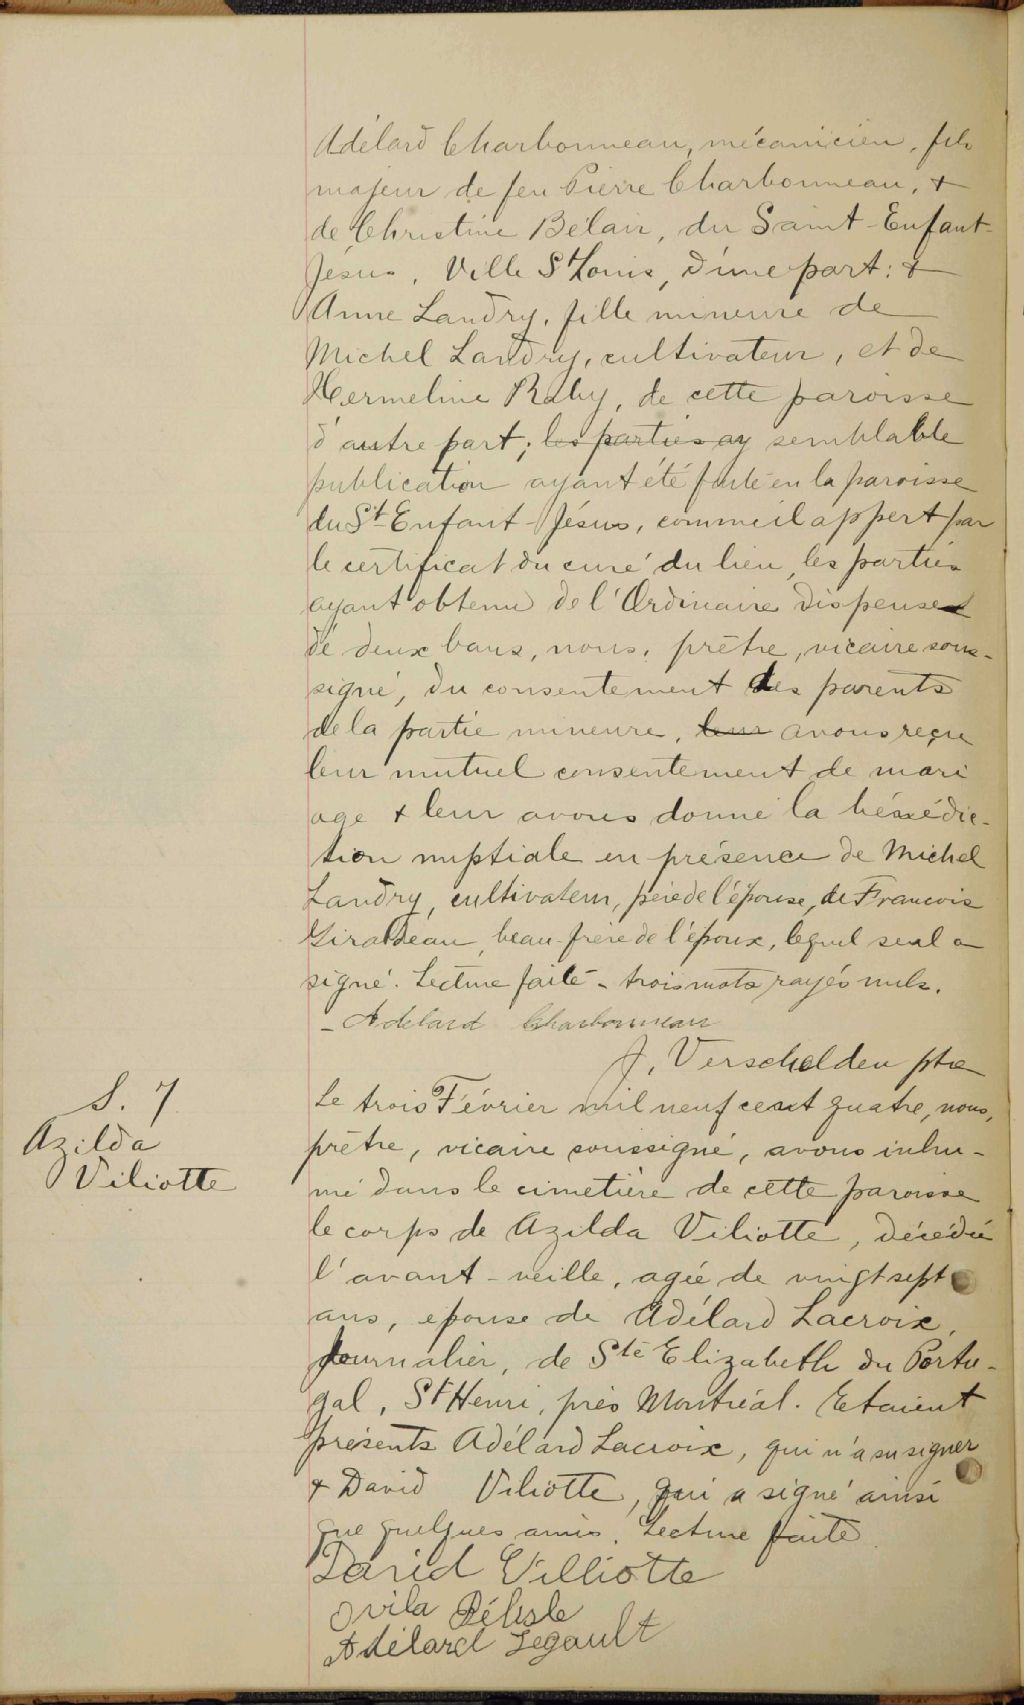 Adélard Charbonneau, mécanicien, fils
majeur de feu Pierre Charbonneau, +
de Christine Bélair, du Saint-Enfant-
Jésus, Ville St Louis, d'une part: +
Anne Landry, fille mineure de
Michel Landry, cultivateur, et de
Hermeline Raby, de cette paroisse
d'autre part; les parties ay semblable
publication ayant été faite en la paroisse
du St-Enfant-Jésus, comme il appert par
le certificat du curé du lieu, les parties
ayant obtenu de l'Ordinaire dispense
de deux bans, nous, prêtre, vicaire sous-
signé, du consentement des parents
de la partie mineure, leur avons reçu
leur mutuel consentement de mari
age + leur avons donné la bénédic-
tion nuptiale en présence de Michel
Landry, cultivateur, père de l'épouse, de François
Giraldeau, beau-frère de l'époux, lequel seul a
signé. Lecture faite - trois mots rayés nuls.
- Adelard Charbonneau
J. Verschelden ptre
S. 7
Azilda
Viliotte
Le trois Février mil neuf cent quatre, nous,
prêtre, vicaire soussigné, avons inhu-
mé dans le cimetière de cette paroisse
le corps de Azilda Viliotte, décédée
l'avant-veille, agée de vingt sept
ans, epouse de Adélard Lacroix,
journalier, de Ste Elizabeth du Portu-
gal, St Henri, près Montréal. Etaient
présents Adélard Lacroix, qui n'a su signer
+ David Viliotte, qui a signé ainsi
que quelques amis. Lecture faite
David Villiotte
Ovila Bélisle
Adélard Legault